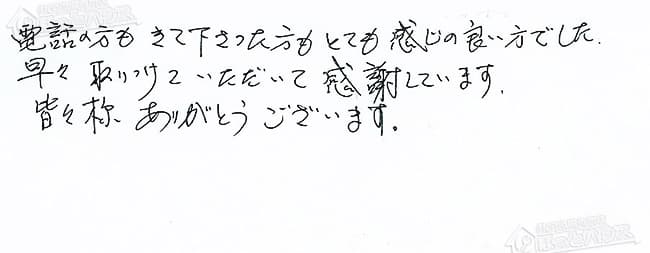 電話の方も きて下さった方も とても 感じの良い方でした.
早々 取りつけて いただいて 感謝しています.
皆々様、ありがとう ございます。